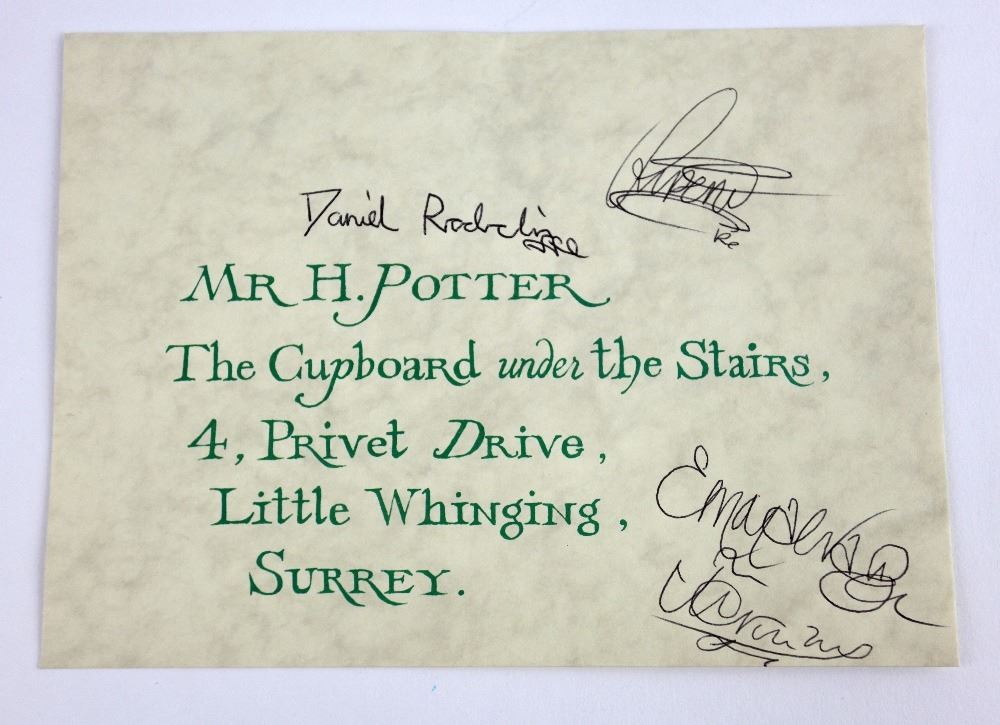 Daniel Radcliffe
MR H. POTTER
The Cupboard under the Stairs,
4, Privet Drive,
Little Whinging,
SURREY.